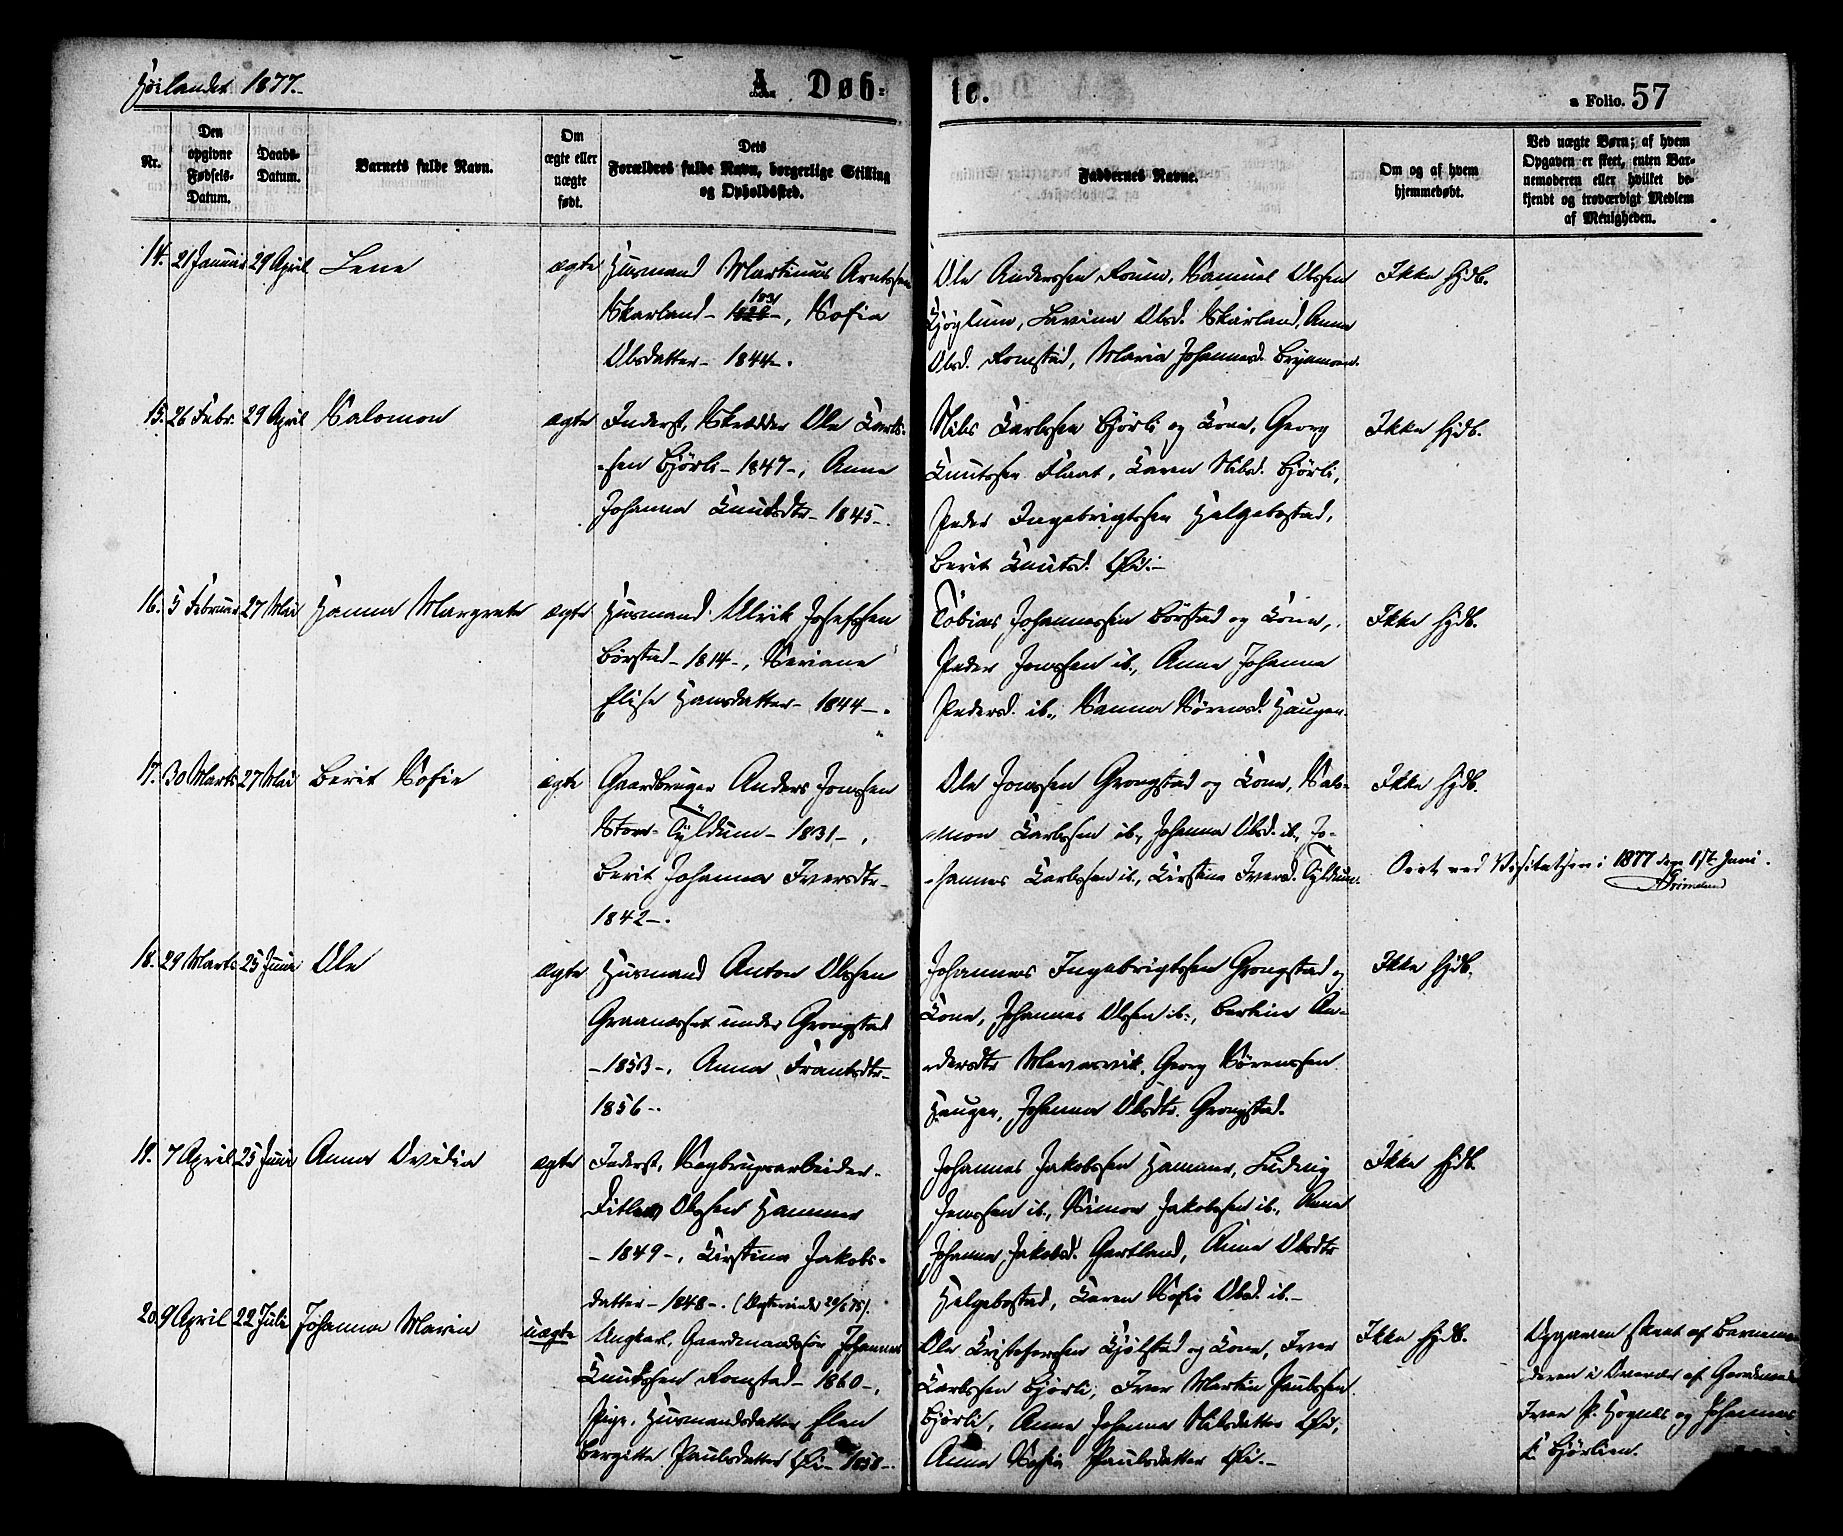 Høilandet 1877.
A. Døb-
te.
a Folio. 57
Nr.
Den opgivne Fødsels-Datum.
Daabs-Datum.
Barnets fulde Navn.
Om ægte eller uægte født.
Dets Forældres fulde Navn, borgerlige Stilling og Opholdssted.
Faddernes Navne.
Om og af hvem hjemmedøbt.
Ved uægte Børn; af hvem Opgaven er skeet, enten Barnemoderen eller hvilket bekjendt og troværdigt Medlem af Menigheden.
14. 21 Januar 29 April Lene ægte Husmand Martinus Arntssen
Skarland - 1828 1831 -, Sofia
Olsdatter - 1844 -.
Ole Anderssen Romm, Samuel Olssen
Kjøglum, Lavina Olsd. Skarland, Anna
Olsd. Romstad, Maria Johannesd.
Ikke hjdb.
15. 26 Febr. 29 April Salomon ægte Inderst, Skrædder Ole Karls-
-sen Bjørli - 1847 -, Anne
Johanna Knutsdtr - 1845 -.
Nils Karlssen Bjørli og Kone, Georg
Knutssen Flaat, Karen Nilsd. Bjørli,
Peder Ingebrigtssen Helgebostad,
Berit Knutsd. Øi. -
Ikke hjdb.
16. 5 Februar 27 Mai Hanna Margrete ægte Husmand Ulrik Josefssen
Børstad - 1814 -, Seriane
Elise Hansdatter - 1844 -.
Tobias Johannessen Børstad og Kone,
Peder Jonssen ib., Anne Johanna
Pedersd. ib., Sanna Sørensd. Haugen.
Ikke hjdb.
17. 30 Marts 27 Mai Berit Sofie ægte Gaardbruger Anders Jonssen
Store-Tyldum - 1831 -,
Berit Johanna Iversdtr -
1842 -.
Ole Jonssen Grongstad og Kone, Salo-
-mon Karlssen ib., Johanna Olsd. ib., Jo-
-hannes Karlssen ib., Kirstine Iversd. Tyldum.
Ikke hjdb.
Seet ved Visitatsen i 1877 den 1ste Juni.
Grimelund
18. 29 Marts 25 Juni Ole ægte Husmand Anton Olssen
Graanesset under Grongstad
- 1853 -, Anna Frantsdtr -
1856 -.
Johannes Ingebrigtssen Grongstad og
Kone, Johannes Olssen ib., Bertine An-
-dersdtr Mevasvik, Georg Sørenssen
Haugen, Johanna Olsdtr. Grongstad.
Ikke hjdb.
19. 7 April 25 Juni Anna Ovidia ægte Inderst, Sagbrugsarbeider
Ditlev Olssen Hammer
- 1849 -, Kirstina Jakobs-
datter - 1848 -.
Johannes Jakobssen Hammer, Ludvig
Jenssen ib., Simon Jakobssen ib., Anne
Johanna Jakobsd. Gartland, Anne Olsdtr
Helgebostad, Karen Sofie Olsd. ib. -
Ikke hjdb.
20. 9 April 22 Juli Johanna Maria uægte Ungkarl, Gaardmandssøn Johannes
Knutssen Romstad - 1860 -,
Pige, Husmandsdatter Elen
Bergitta Paulsdatter Øi - 1858 -.
Ole Kristofersen Kjølstad og Kone, Iver
Karlssen Bjørli, Iver Martin Paulssen
Bjørli, Anne Johanna Nilsdatter Øi,
Anna Sofie Paulsdatter Øi. -
Ikke hjdb.
Opgaven skeet af Barnemo-
deren i Overvær af Gaardmand
Iver P. og Johannes
K. Bjørlien.